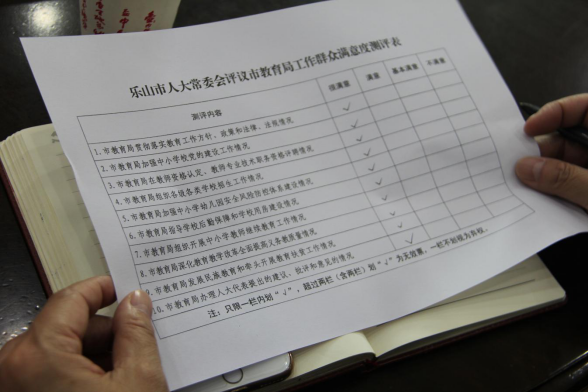 乐山市人大常委会评议市教育局工作群众满意度测评表
测评内容 很满意 满意 基本满意 不满意
1.市教育局贯彻落实教育工作方针、政策和法律、法规情况 √
2.市教育局加强中小学校党的建设工作情况 √
3.市教育局在教师资格认定、教师专业技术职务资格评聘情况 √
4.市教育局组织各级各类学校招生工作情况 √
5.市教育局加强中小学幼儿园安全风险防控体系建设情况 √
6.市教育局指导学校后勤保障和学校用房建设情况 √
7.市教育局组织开展中小学教师继续教育工作情况 √
8.市教育局深化教育教学改革全面提高义务教质量情况 √
9.市教育局发展民族教育和牵头开展教育扶贫工作情况 √
10.市教育局办理人大代表提出的建议、批评和意见的情况 √
注：只限一栏内划“√”，超过两栏（含两栏）划“√”为无效票，一栏不划视为弃权。